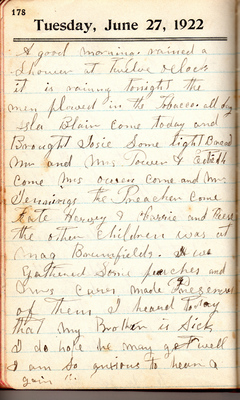 178
Tuesday, June 27, 1922
A good morning rained a
Shower at twelve oclock
it is raining tonight the
men plowed in the Tobacco all day
Isla Blair Come today and
Brought Josie Some light Bread
Mr and Mrs Tower &
Come Mrs Come and Mr.
Jennings the Preacher Come
Kate Hervey & and
the other Children was at
mag Brownfields. we
gathered Some peaches and
Mrs made Preserves
of them I heard today
that my Brother is Sick
I do hope he may get well
I am So anxious to hear a
gain